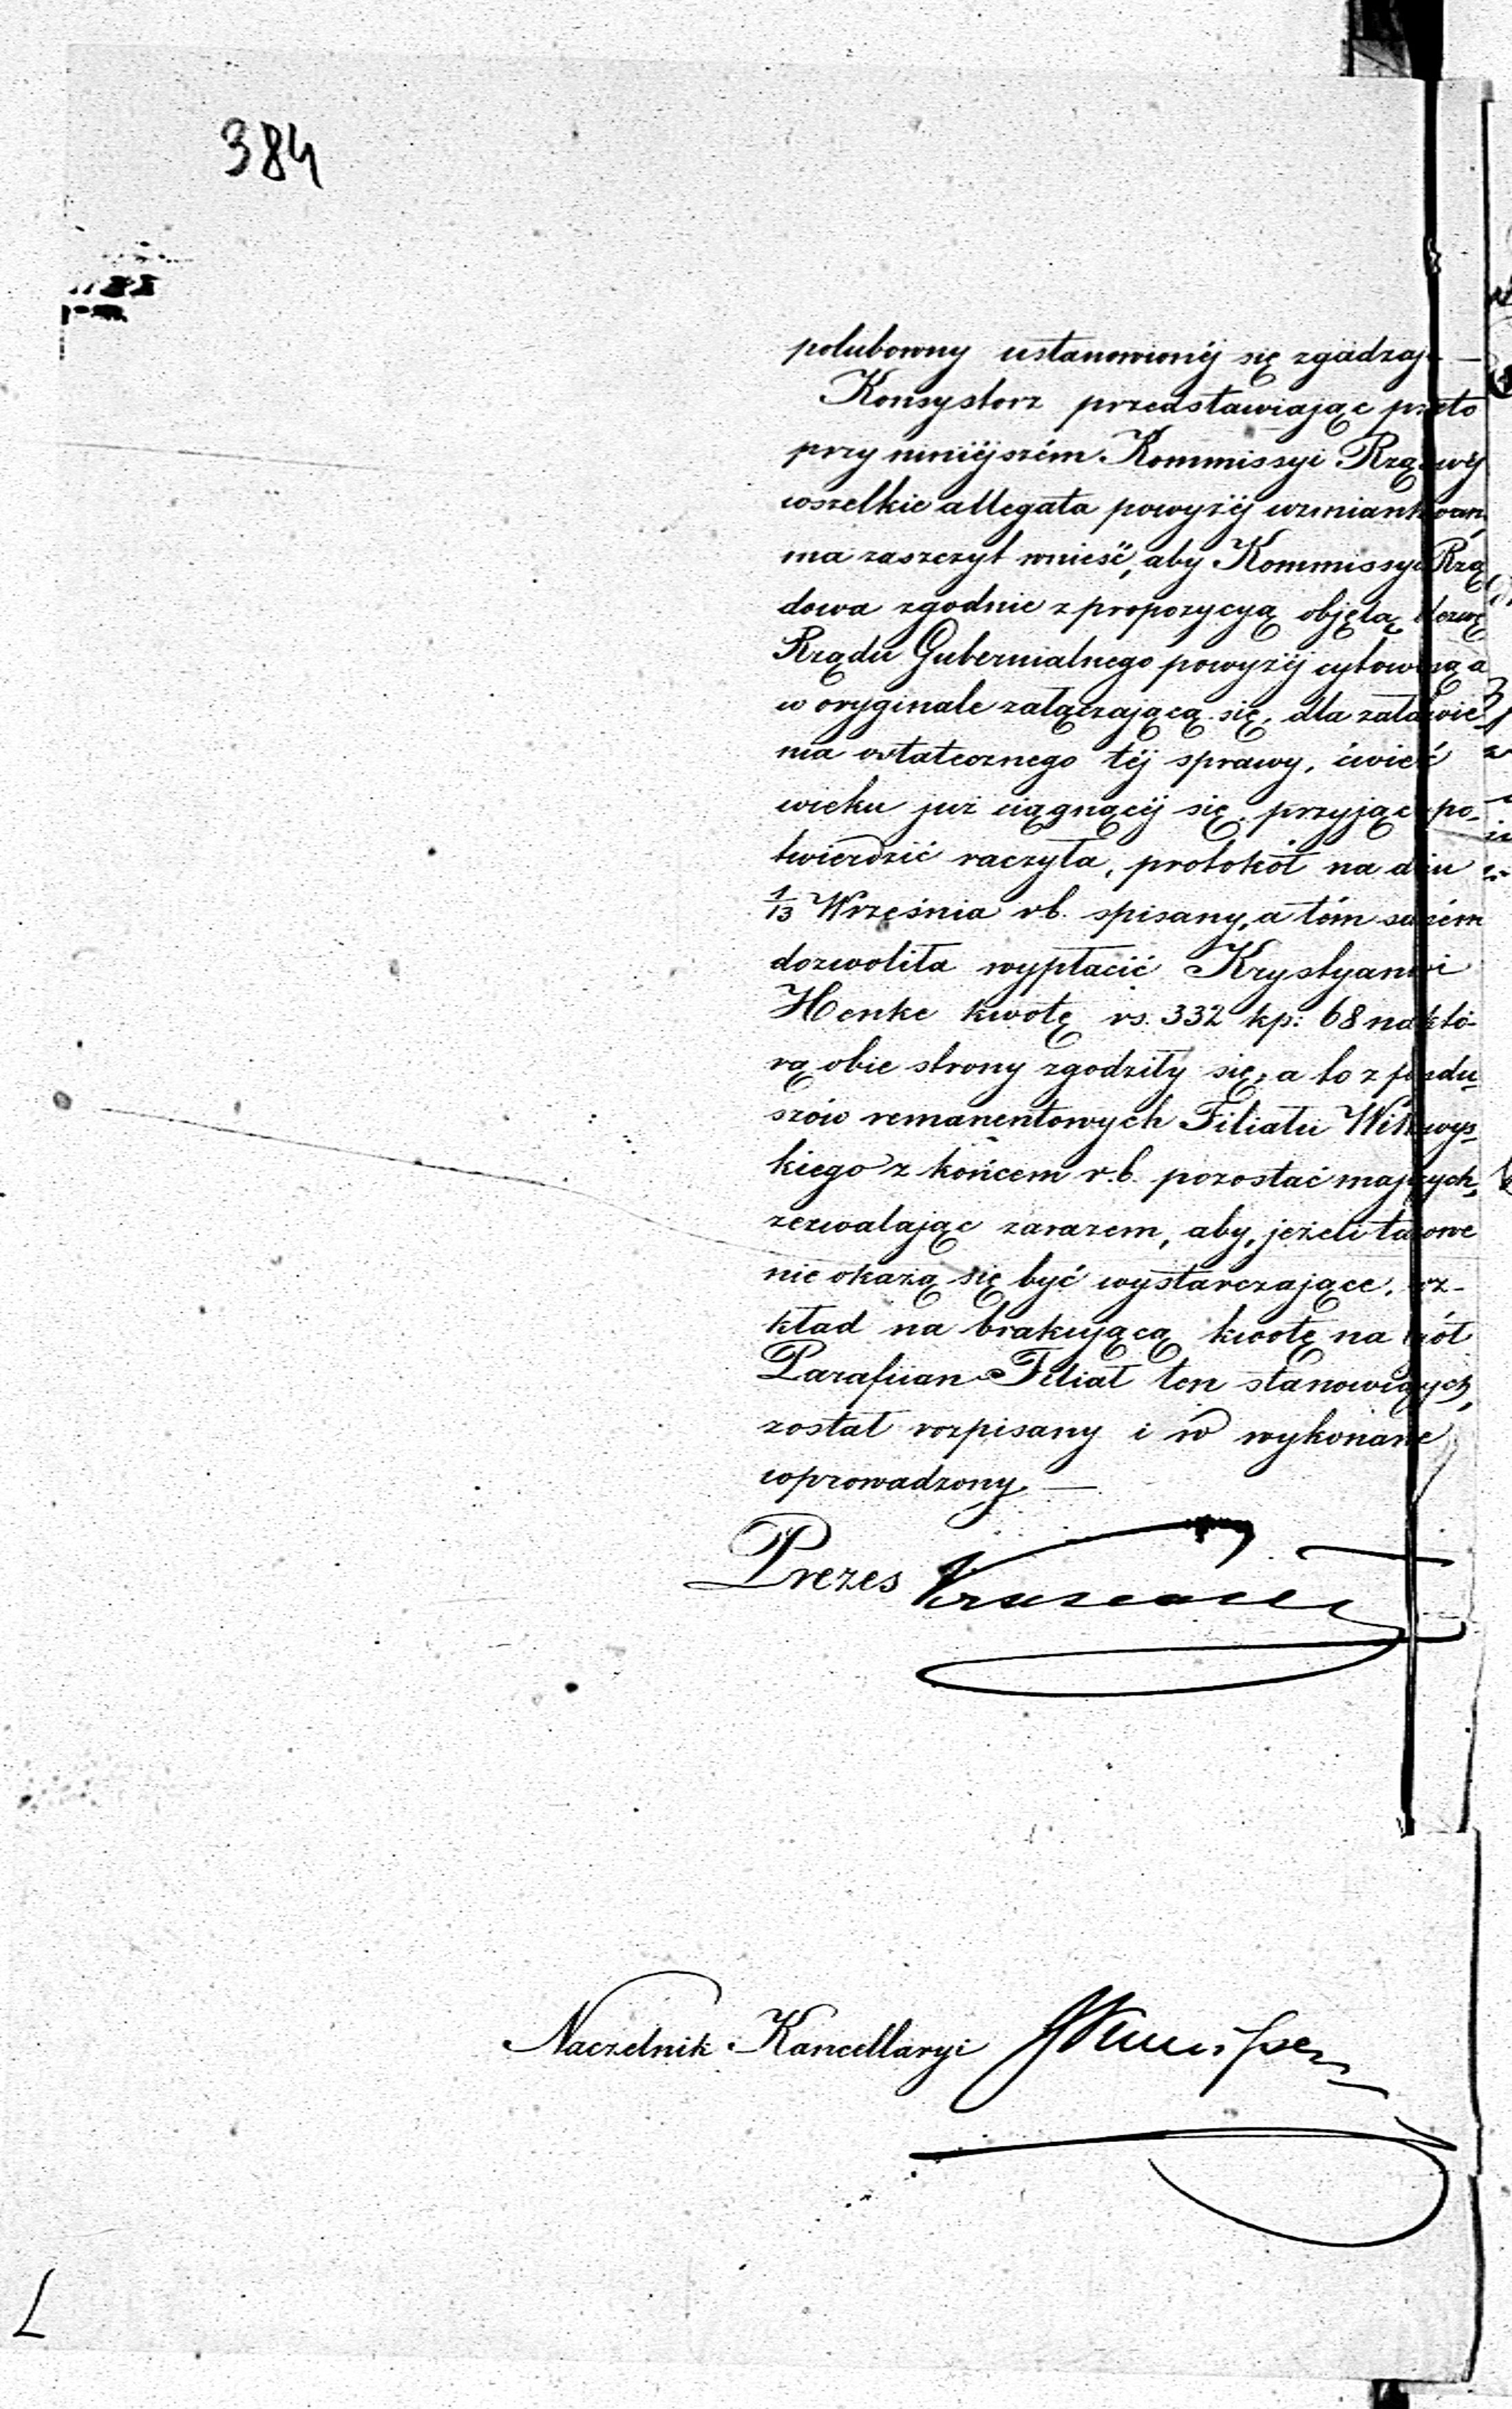 384
polubowny ustanowionéj się zgadzają —
Konsystorz przedstawiając przeto
przy niniéjszém Kommissyi Rządowéj
wszelkie allegata powyżéj wzmiankowane
ma zaszczyt wnieść, aby Kommissya Rzą
dowa zgodnie z propozycyą objętą
Rządu Gubernialnego powyżéj cytowaną a
w oryginale załączającą się, dla załatwie
nia ostatecznego téj sprawy, ćwierć
wieku już ciągnącéj się przyjąć i po-
twierdzić raczyła, protokół na dniu
1/13 Września rb. spisany, a tém samém
dozwoliła wypłacić Krystyanowi
Henke kwotę rs. 332 kp: 68 na któ-
rą obie strony zgodziły się, a to z fundu
szów remanentowych Filiału
kiego z końcem r.b. pozostać mających,
zezwalając zarazem, aby, jeżeli takowe
nie okażą się być wystarczające, roz-
kład na brakującą kwotę na ogół
Parafian Filiał ten stanowiących,
został rozpisany i w wykonanie
wprowadzony —
Prezes
Naczelnik Kancellaryi